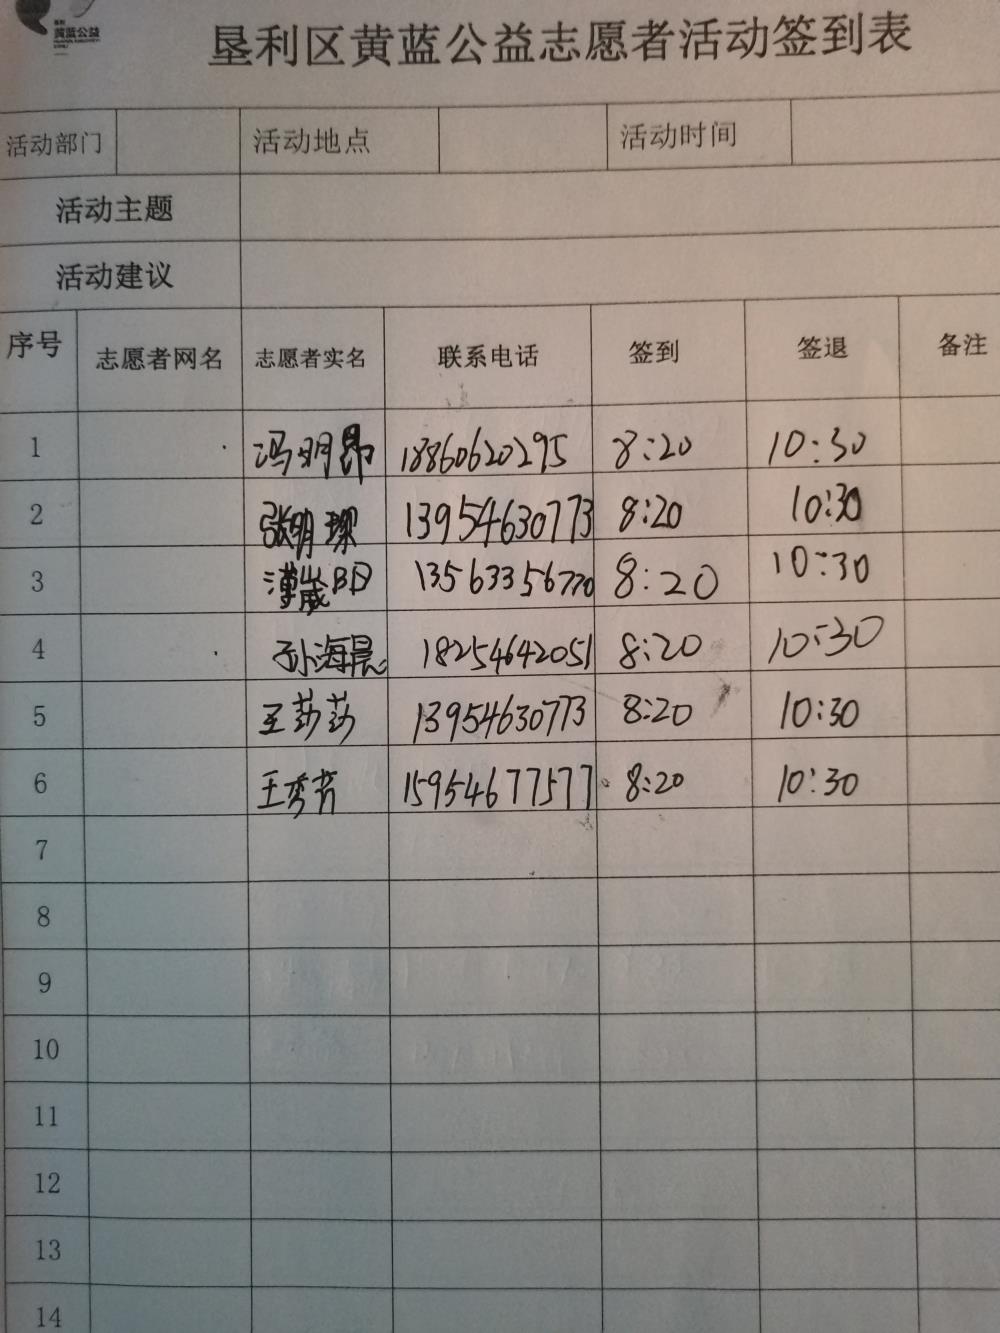 黄蓝公益
垦利区黄蓝公益志愿者活动签到表
活动部门 活动地点 活动时间
活动主题
活动建议
序号 志愿者网名 志愿者实名 联系电话 签到 签退 备注
1 冯明昂 18860620295 8:20 10:30
2 张明琛 13954630773 8:20 10:30
3 13563356770 8:20 10:30
4 孙海晨 18254642051 8:20 10:30
5 王莎莎 13954630773 8:20 10:30
6 王秀芳 15954677577 8:20 10:30
7
8
9
10
11
12
13
14